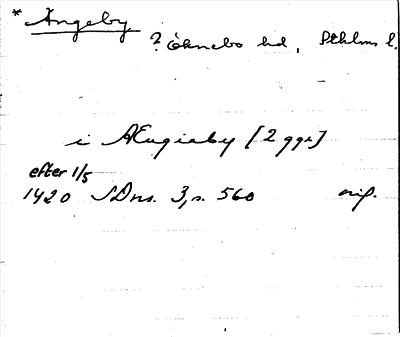 * Ängeby
? Öknebo hd, Sthlms l.
i Ængiaby [2 ggr]
efter 1/5
1420 SDns. 3, s. 560 orig.